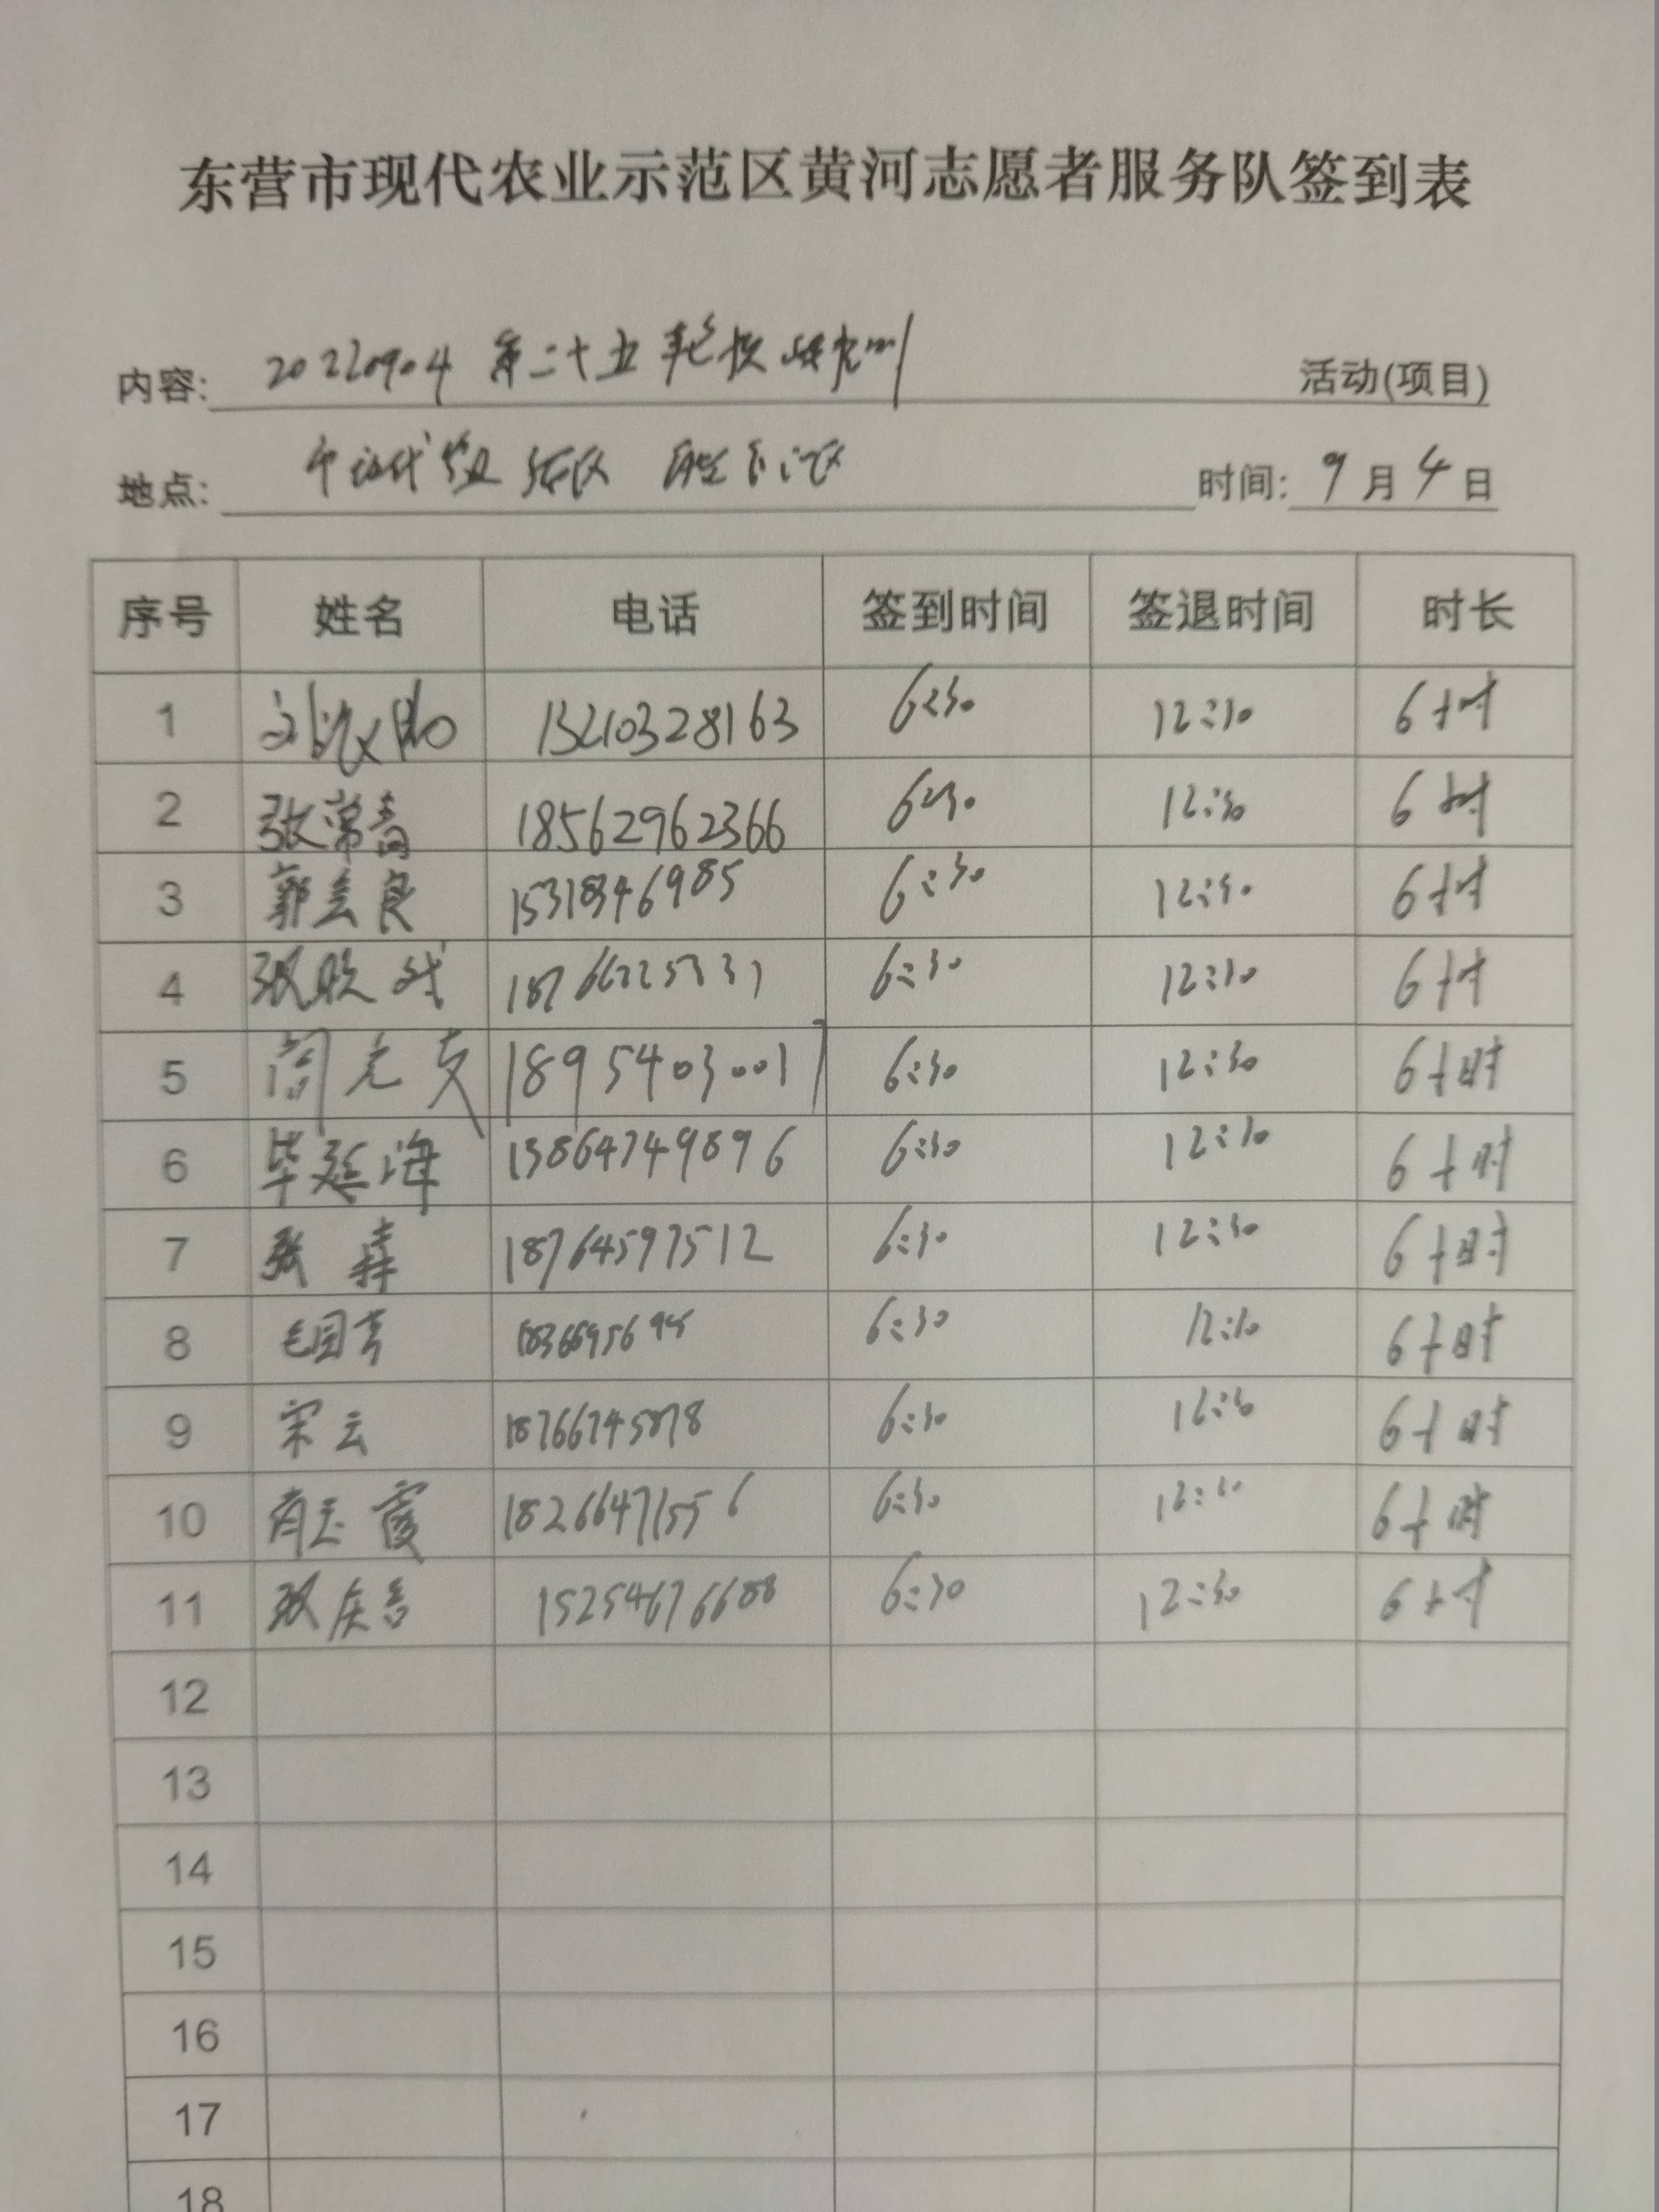 东营市现代农业示范区黄河志愿者服务队签到表
内容: 20220904 第二十五轮 活动(项目)
地点: 时间: 9月4日
序号 姓名 电话 签到时间 签退时间 时长
1 13210328163 6:30 12:30 6小时
2 张常青 18562962366 6:30 12:30 6小时
3 郭会良 15318346985 6:30 12:30 6小时
4 6:30 12:30 6小时
5 18954030017 6:30 12:30 6小时
6 毕延海 13864749896 6:30 12:30 6小时
7 张 18764597512 6:30 12:30 6小时
8 6:30 12:30 6小时
9 宋云 18766745878 6:30 12:30 6小时
10 霞 18266471556 6:30 12:30 6小时
11 15254676688 6:30 12:30 6小时
12
13
14
15
16
17
18